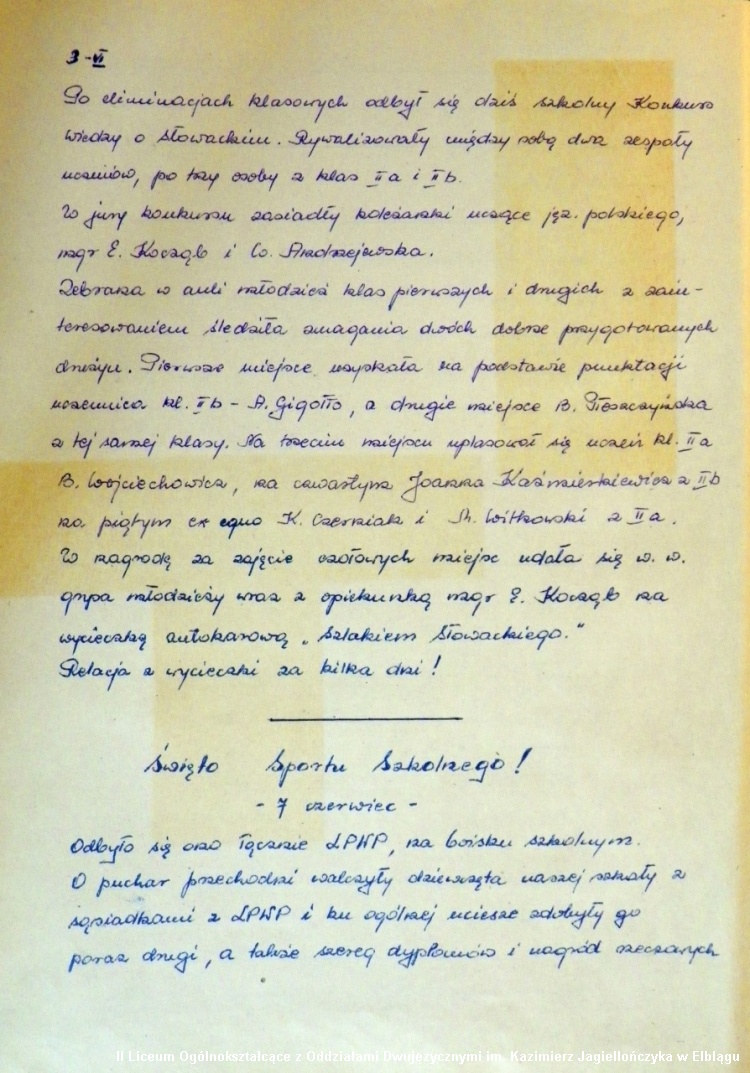 3-VI
Po eliminacjach klasowych odbył się dziś szkolny Konkurs
Wiedzy o Słowackim. Rywalizowały między sobą dwa zespoły
uczniów, po trzy osoby z klas IIa i IIb.
W jury konkursu zasiadły koleżanki uczące jęz. polskiego,
mgr E. Kociąb i W. Andrzejewska.
Zebrana w auli młodzież klas pierwszych i drugich z zain-
teresowaniem śledziła zmagania dwóch dobrze przygotowanych
drużyn. Pierwsze miejsce uzyskała na podstawie punktacji
uczennica kl. IIb - A. Gigołło, a drugie miejsce B. Pieszczyńska
z tej samej klasy. Na trzecim miejscu uplasował się uczeń kl. IIa
B. Wojciechowicz, na czwartym Joanna Kaźmierkiewicz z IIb
na piątym ex equo K. Czerniak i M. Witkowski z IIa.
W nagrodę za zajęcie czołowych miejsc udała się w. w.
grupa młodzieży wraz z opiekunką mgr E. Kociąb na
wycieczkę autokarową „Szlakiem Słowackiego."
Relacja z wycieczki za kilka dni!
Święto Sportu Szkolnego!
- 7 czerwiec -
Odbyło się ono łącznie LPWP, na boisku szkolnym.
O puchar przechodni walczyły dziewczęta naszej szkoły z
sąsiadkami z LPWP i ku ogólnej uciesze zdobyły go
poraz drugi, a także szereg dyplomów i nagród rzeczowych
II Liceum Ogólnokształcące z Oddziałami Dwujęzycznymi im. Kazimierz Jagiellończyka w Elblągu